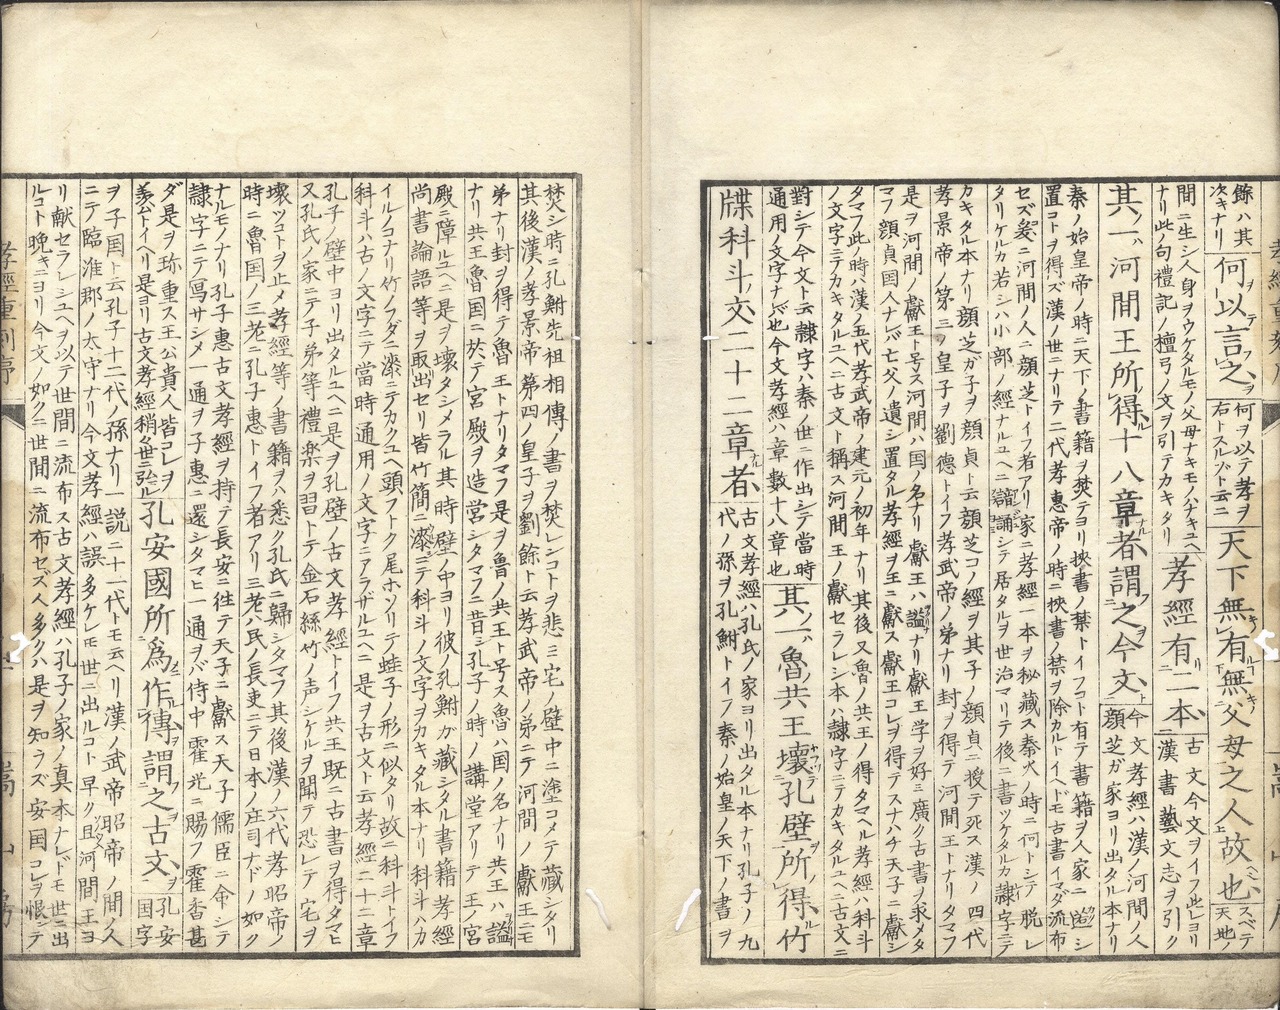 餘ハ其
次キナリ
何以言之
何ヲ以テ孝ヲ
右トスルバト云ニ
天下無有無父母之人故也
スベテ
天地ノ
間ニ生シ人身ヲウケタルモノ父母ナキモノハナキユヘ
ナリ此ノ句禮記ノ檀弓ノ文ヲ引テカキタリ
孝經有二本
古文今文ヲイフ此レヨリ
漢書藝文志ヲ引ク
其一河間王所得十八章者謂之今文
今文孝經ハ漢ノ河間ノ人
顔芝ガ家ヨリ出タル本ナリ
秦ノ始皇帝ノ時ニ天下ノ書籍ヲ焚テヨリ挾書ノ禁トイフコト有テ書籍ヲ人家ニ
置コトヲ得ズ漢ノ世ニナリテ二代孝惠帝ノ時ニ挾書ノ禁ヲ除カルトイヘドモ古書イマダ流布
セズ爰ニ河間ノ人ニ顔芝トイフ者アリ家ニ孝經一本ヲ秘藏ス秦火ノ時ニ何トシテ脱レ
タリケルカ若シハ小部ノ經ナルユヘニ諳誦シテ居タルヲ世治マリテ後ニ書ツケタルカ隷字ニテ
カキタル本ナリ顔芝ガ子ヲ顔貞ト云顔芝コノ經ヲ其子ノ顔貞ニ授テ死ス漢ノ四代
孝景帝ノ第三ノ皇子ヲ劉德トイフ孝武帝ノ弟ナリ封ヲ得テ河間王トナリタマフ
是ヲ河間ノ獻王ト号ス河間ハ国ノ名ナリ獻王ハ謚ナリ獻王学ヲ好ミ廣ク古書ヲ求メタ
マフ顔貞国人ナレバ亡父ノ遺シ置タル孝經ヲ王ニ獻ス獻王コレヲ得テスナハチ天子ニ獻シ
タマフ此時ハ漢ノ五代孝武帝ノ建元ノ初年ナリ其後又魯ノ共王ノ得タマヘル孝經ハ科斗
ノ文字ニテカキタルユヘニ古文ト稱ス河間王ノ獻セラレシ本ハ隷字ニテカキタルユヘニ古文ニ
對シテ今文ト云隷字ハ秦ノ世ニ作出シテ當時
通用ノ文字ナレバ也今文孝經ハ章數十八章也
其一魯共王壞孔壁所得竹
牒科斗文二十二章者
古文孝經ハ孔氏ノ家ヨリ出タル本ナリ孔子ノ九
代ノ孫ヲ孔鮒トイフ秦ノ始皇ノ天下ノ書ヲ
焚シ時ニ孔鮒先祖相傳ノ書ヲ焚レンコトヲ悲ミ宅ノ壁中ニ塗コメテ藏シタリ
其後漢ノ孝景帝第四ノ皇子ヲ劉餘ト云孝武帝ノ弟ニテ河間ノ獻王ニモ
弟ナリ封ヲ得テ魯王トナリタマフ是ヲ魯ノ共王ト号ス魯ハ国ノ名ナリ共王ハ謚
ナリ共王魯国ニ於テ宮殿ヲ造営シタマフニ昔シ孔子ノ時ノ講堂アリテ王ノ宮
殿ニ障ルユヘニ是ヲ壞タシメラル其時壁ノ中ヨリ彼ノ孔鮒ガ藏シタル書籍孝經
尚書論語等ヲ取出セリ皆竹簡ニ漆ニテ科斗ノ文字ヲカキタル本ナリ科斗ハカ
イルノコナリ竹ノフダニ漆ニテカクユヘ頭フトク尾ホソリテ蛙子ノ形ニ似タリ故ニ科斗トイフ
科斗ハ古ノ文字ニテ當時通用ノ文字ニアラザルユヘニ是ヲ古文ト云孝經二十二章
孔子ノ壁中ヨリ出タルユヘニ是ヲ孔壁ノ古文孝經トイフ共王既ニ古書ヲ得タマヒ
又孔氏ノ家ニテ子弟等禮楽ヲ習トテ金石絲竹ノ声シケルヲ聞テ恐レテ宅ヲ
壞ツコトヲ止メ孝經等ノ書籍ヲハ悉ク孔氏ニ歸シタマフ其後漢ノ六代孝昭帝ノ
時ニ魯国ノ三老ニ孔子惠トイフ者アリ三老ハ民ノ長吏ニテ日本ノ庄司ナドノ如ク
ナルモノナリ孔子惠古文孝經ヲ持テ長安ニ徃テ天子ニ獻ス天子儒臣ニ命シテ
隷字ニテ写サシメ一通ヲ子惠ニ還シタマヒ一通ヲバ侍中霍光ニ賜フ霍光甚
ダ是ヲ珎重ス王公貴人皆コレヲ
トイヘリ是ヨリ古文孝經稍々世ニ弘ル
孔安國所爲作傳謂之古文
孔安
国字
ヲ子国ト云孔子十二代ノ孫ナリ一説ニ十一代トモ云ヘリ漢ノ武帝昭帝ノ間ノ人
ニテ臨淮郡ノ太守ナリ今文孝經ハ誤多ケレモ世ニ出ルコト早ク且河間王ヨ
リ獻セラレシユヘヲ以テ世間ニ流布ス古文孝經ハ孔子ノ家ノ真本ナレドモ世ニ出
ルコト晩キニヨリ今文ノ如クニ世間ニ流布セズ人多クハ是ヲ知ラズ安国コレヲ恨シテ